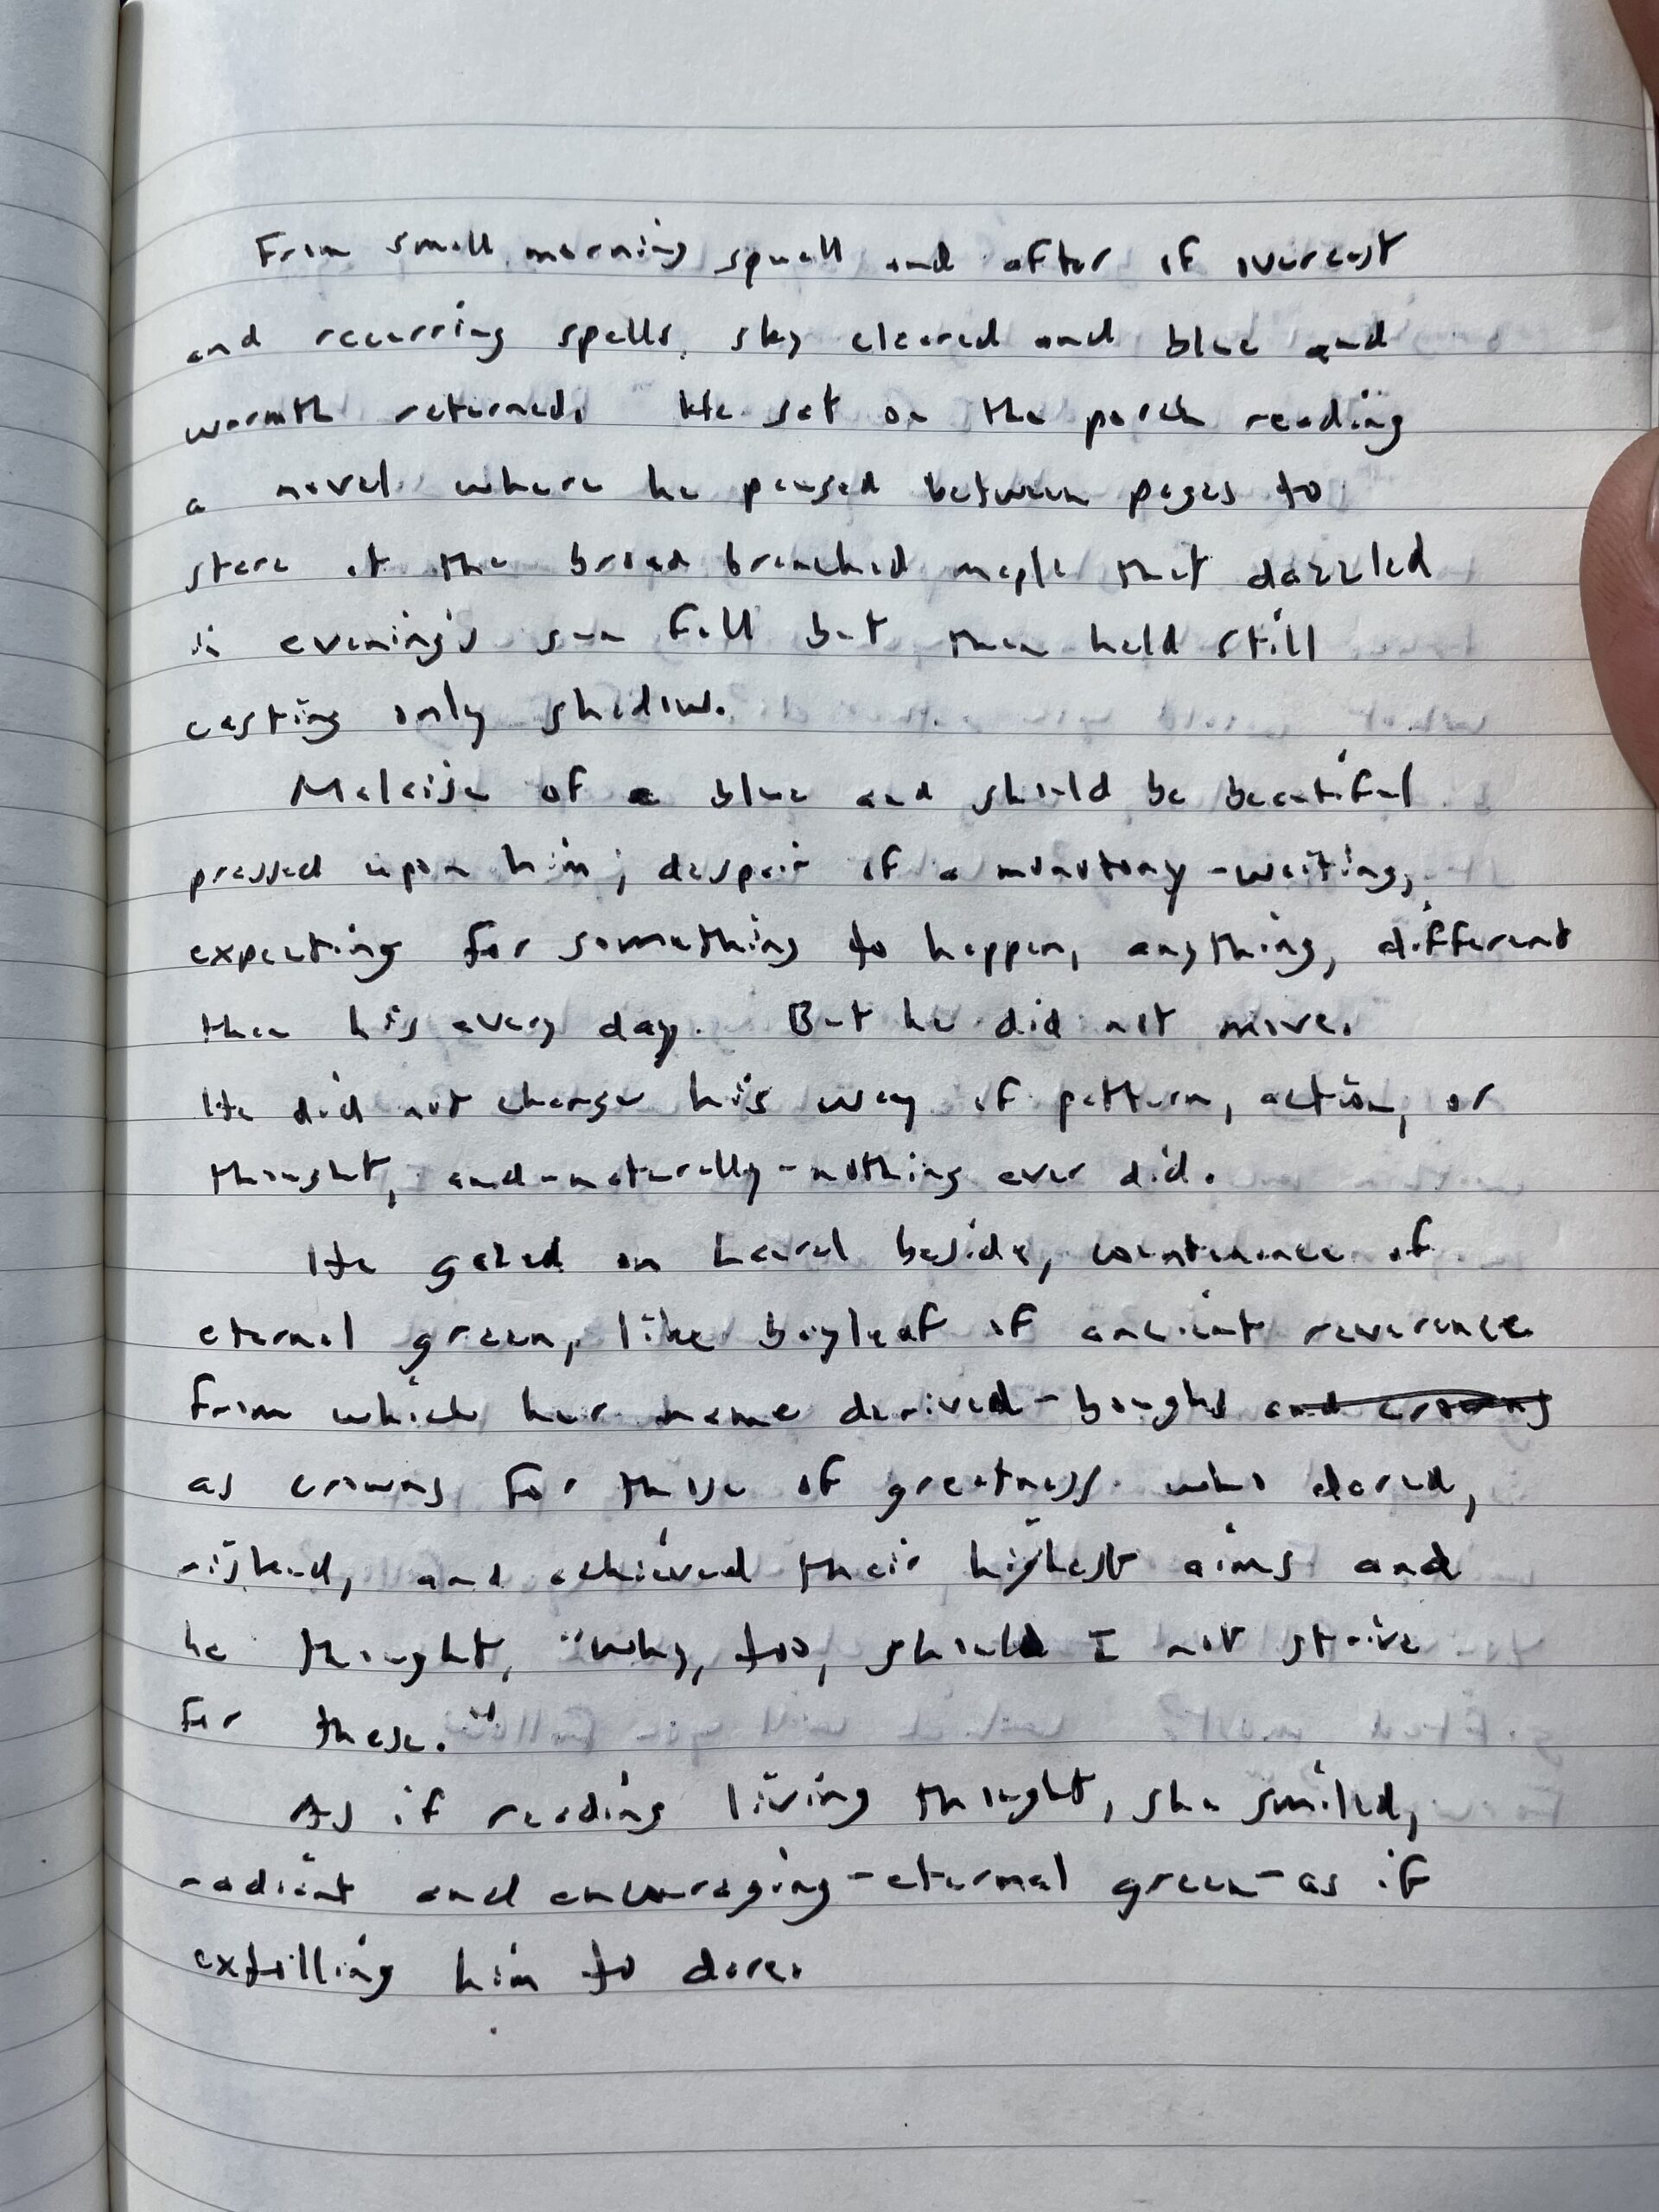 From small morning squall and after of overcast
and recurring spells, sky cleared and blue and
warmth returned. He sat on the porch reading
a novel where he paused between pages to
stare at the broad branched maple that dazzled
in evening's sun fall but then held still
casting only shadow.
Malaise of a blue and should be beautiful
pressed upon him; despair of a monotony - waiting,
expecting for something to happen, anything, different
than his every day. But he did not move.
He did not change his way of pattern, action, or
thought, and - naturally - nothing ever did.
He gazed on Laurel beside, countenance of
eternal green, like bayleaf of ancient reverence
from which her name derived - boughs and crowns
as crowns for those of greatness who dared,
risked, and achieved their highest aims and
he thought, "why, too, should I not strive
for these."
As if reading living thought, she smiled,
radiant and encouraging - eternal green - as if
extolling him to dare.